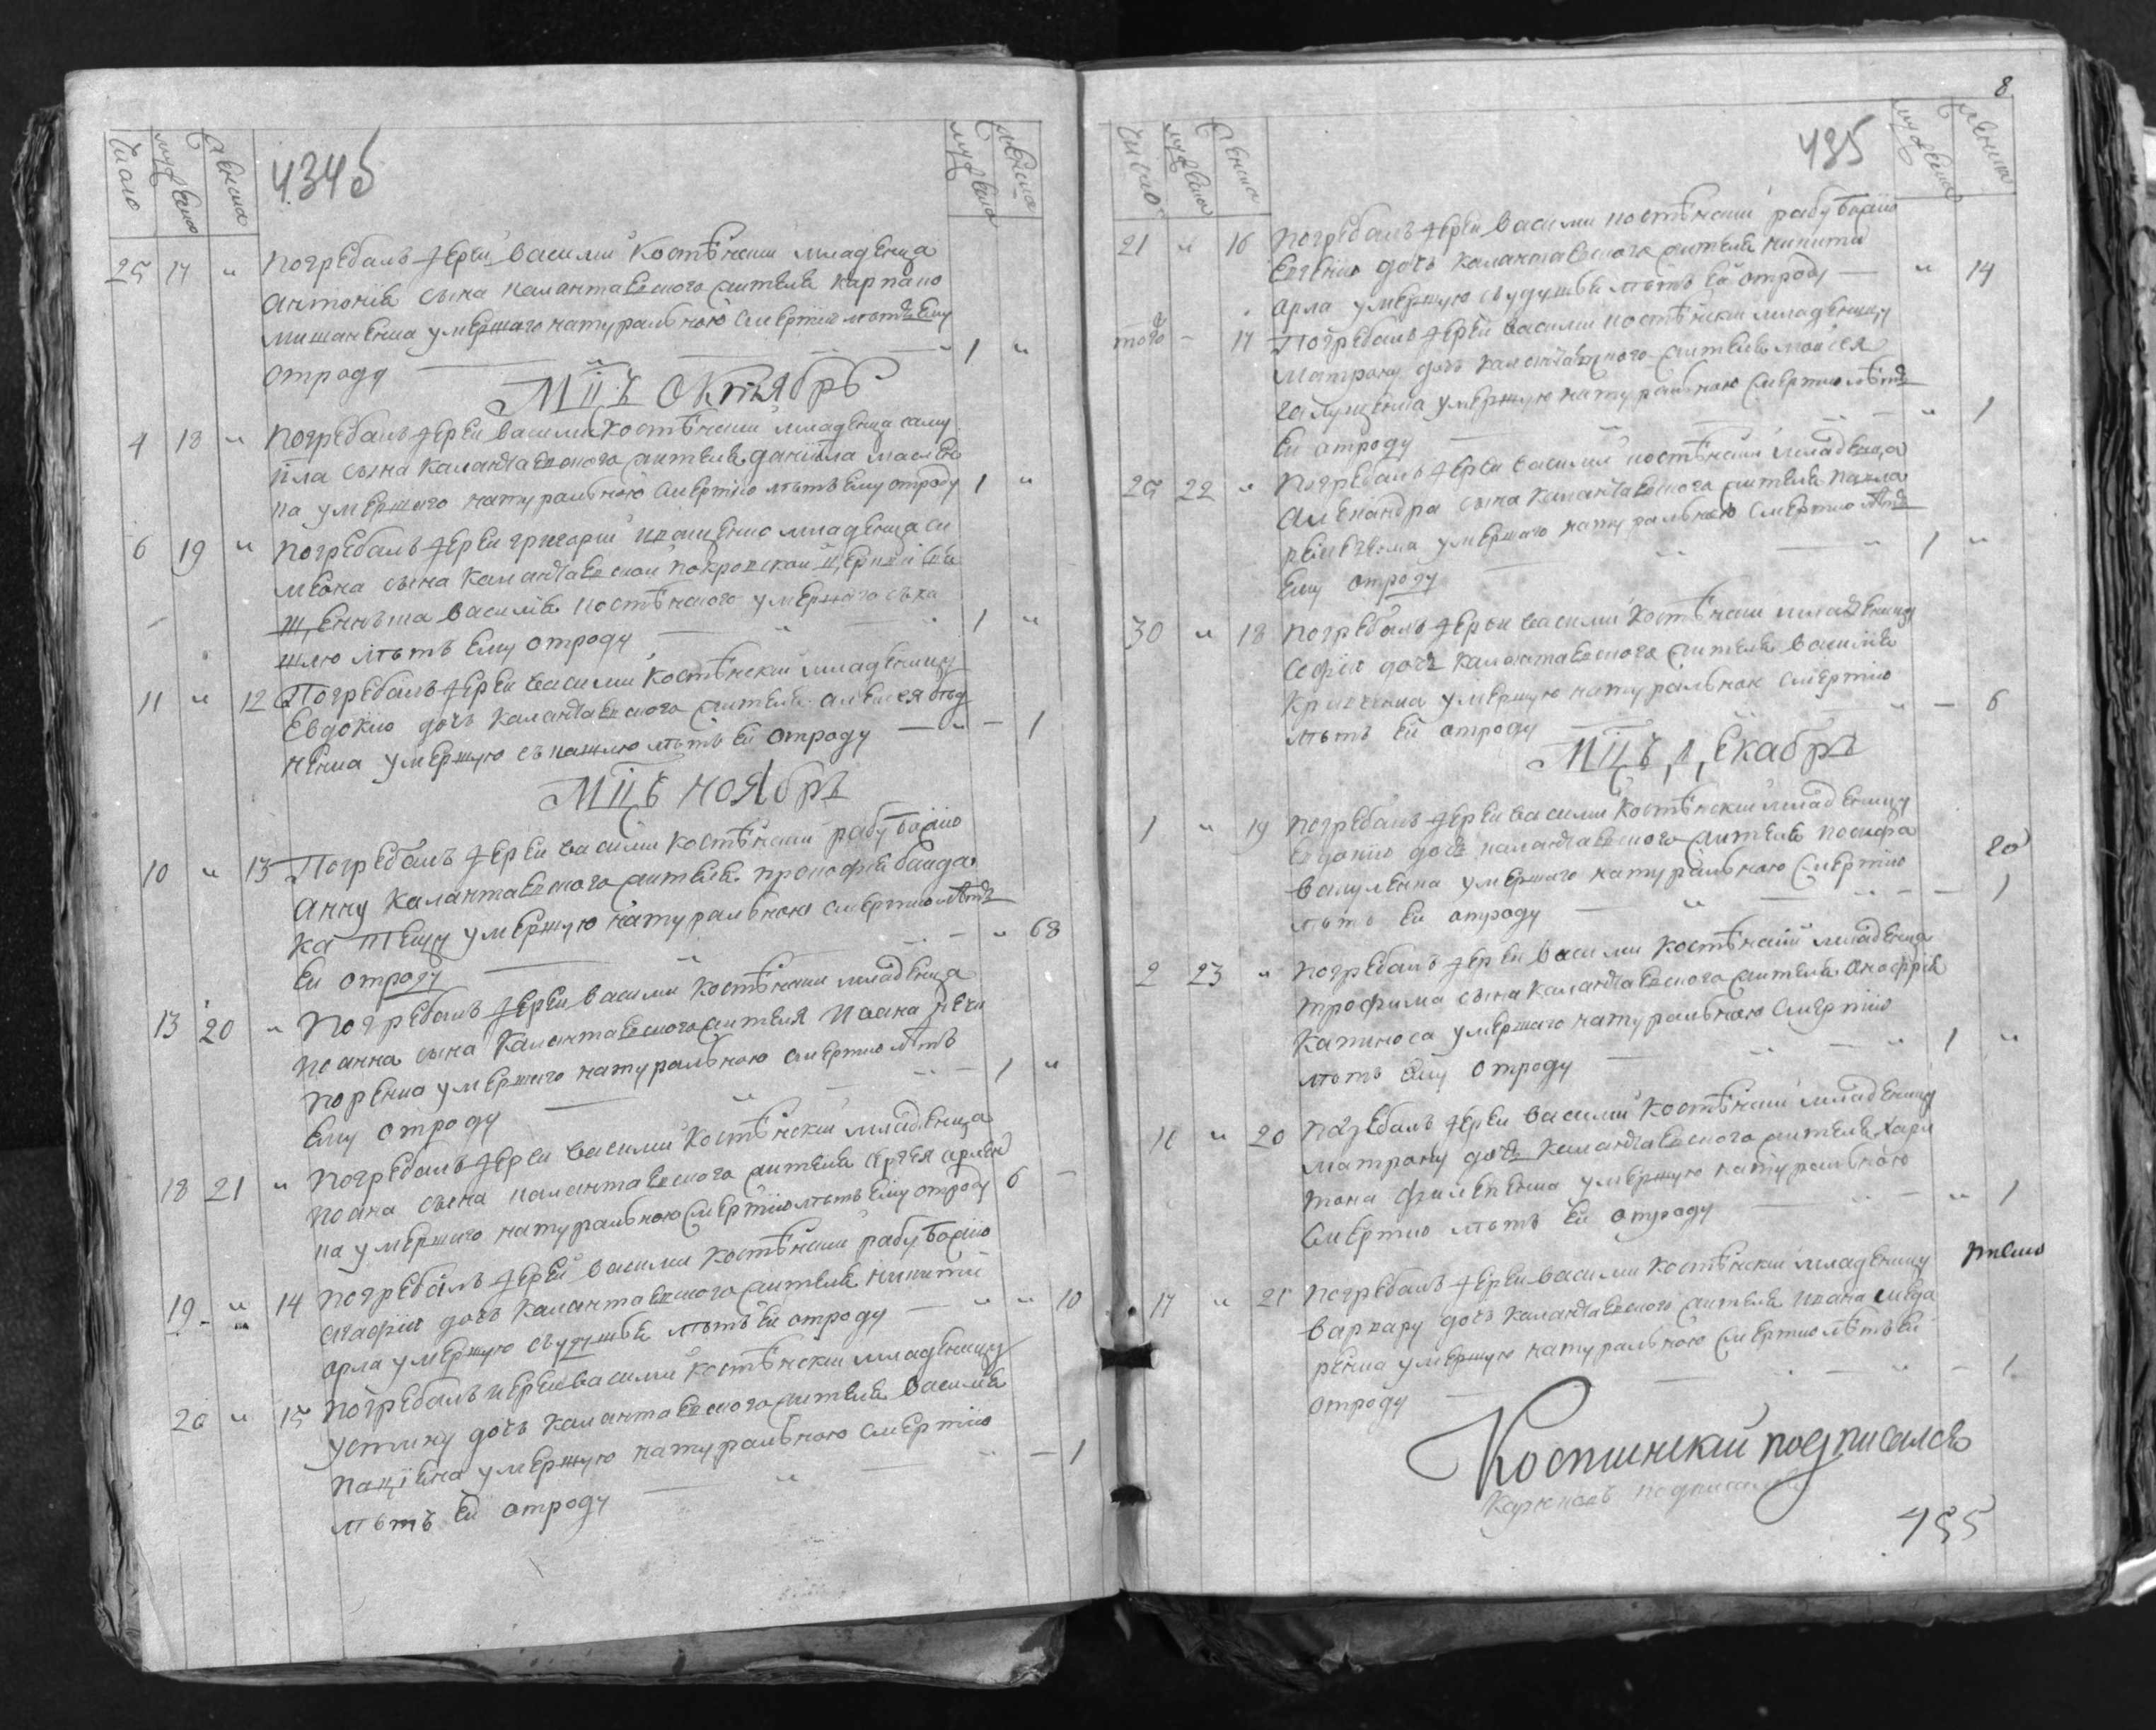 Число
мужеска
женска
4345
мужеска
женска
25 17 " Погребалъ Іерей Василий Костѣнский младенца
Антонія сына Калантаевского жителя Карпа но
мишаненка умершаго натуральною смертію лѣтъ ему
отроду 1 "
Мцъ Октябрь
4 18 " Погребалъ Іерей Василий Костѣнский младенца саму
ила сына Калантаевского жителя даніила маслен
ка умершаго натуральною смертію лѣтъ ему отроду 1 "
6 19 " Погребалъ Іерей григорий Иващенко младенца си
меона сына Калантаевской покровской церкви свя
щенника Василія Костѣнского умершаго съ ка
шлю лѣтъ ему отроду 1 "
11 " 12 Погребалъ Іерей Василий Костѣнский младеницу
Евдокію дочь Калантаевского жителя алексея
ненка умершую съ кашлю лѣтъ ей отроду " 1
Мцъ Ноябрь
10 " 13 Погребалъ Іерей Василий Костѣнский рабу Божію
Анну Калантаевского жителя прокофія байда
ка тещу умершую натуральною смертію лѣтъ
ей отроду " 68
13 20 " Погребалъ Іерей Василий Костѣнский младенца
Иоанна сына Калантаевского жителя Иоана нечи
поренка умершаго натуральною смертію лѣтъ
ему отроду 1 "
18 21 " Погребалъ Іерей Василий Костѣнский младенца
Иоана сына Калантаевского жителя сергея
ка умершаго натуральною смертію лѣтъ ему отроду 6 -
19 " 14 Погребалъ Іерей Василий Костѣнский рабу Божію
Агафію дочь Калантаевского жителя никиты
орла умершую съ удушья лѣтъ ей отроду " 10
20 " 15 Погребалъ Иерей Василий Костѣнский младеницу
Устину дочь Калантаевского жителя Василія
умершую натуральною смертію
лѣтъ ей отроду - 1
8
Число
мужеска
женска
435
мужеска
женска
21 " 16 Погребалъ Іерей Василий Костѣнский рабу Божію
Евгенію дочь Калантаевского жителя никиты
орла умершую съ удушья лѣтъ ей отроду " 14
того - 17 Погребалъ Іерей Василий Костѣнский младеницу
Матрону дочь Калантаевского жителя моисея
галущенка умершую натуральною смертію лѣтъ
ей отроду " 1
25 22 " Погребалъ Іерей Василий Костѣнский младенца
Александра сына Калантаевского жителя павла
умершаго натуральною смертію лѣтъ
ему отроду 1 "
30 " 18 Погребалъ Іерей Василий Костѣнский младеницу
Софію дочь Калантаевского жителя Василія
умершую натуральною смертію
лѣтъ ей отроду - 6
Мцъ Декабрь
1 " 19 Погребалъ Іерей Василий Костѣнский младеницу
Евдокию дочь Калантаевского жителя иосифа
вакуленка умершаго натуральною смертію
лѣтъ ей отроду - 1
2 23 " Погребалъ Іерей Василий Костѣнский младенца
трофима сына Калантаевского жителя Онофрія
умершаго натуральною смертію
лѣтъ ему отроду 1 "
16 " 20 Погребалъ Іерей Василий Костѣнский младеницу
матрону дочь Калантаевского жителя хари
тона филепенка умершую натуральною
смертію лѣтъ ей отроду " 1
17 " 21 Погребалъ Іерей Василий Костѣнский младеницу
варвару дочь Калантаевского жителя Ивана сида
ренка умершую натуральною смертію лѣтъ ей
отроду - 1
Костинский подписался
435